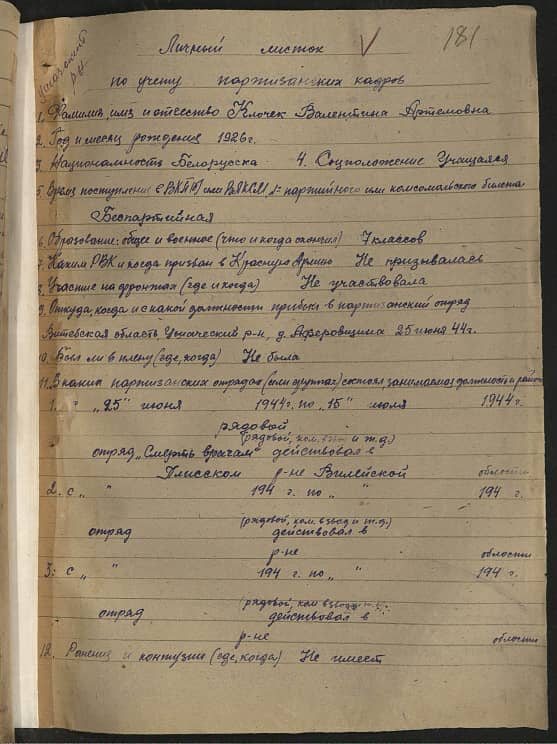 181
Личный листок
по учету партизанских кадров
1. Фамилия, имя и отчество Клочек Валентина Артемовна
2. Год и месяц рождения 1926 г.
3. Национальность Белорусска 4. Соцположение Учащаяся
5. Время поступления в ВКП(б) или ВЛКСМ, № партийного или комсомольского билета
Беспартийная
6. Образование: общее и военное (что и когда окончил) 7 классов
7. Каким РВК и когда призван в Красную Армию Не призывалась
8. Участие на фронтах (где и когда) Не участвовала
9. Откуда, когда и с какой должности прибыл в партизанский отряд
Витебская область, Ушачский р-н, д. Аферовщина 25 июня 44 г.
10. Был ли в плену (где, когда) Не была
11. В каких партизанских отрядах (или группах) состоял, занимаемая должность и район
1. с „25" июня 1944 г. по „15" июля 1944 г.
рядовой
(рядовой, ком. взв. и т.д.)
отряд „Смерть врагам" действовал в
Плисском р-не Вилейской области
2. с „ " 194 г. по „ " 194 г.
(рядовой, ком. взвод и т.д.)
отряд действовал в
р-не области
3. с „ " 194 г. по „ " 194 г.
(рядовой, ком взвод и т.д.)
отряд действовал в
р-не области
12. Ранения и контузии (где, когда) Не имеет